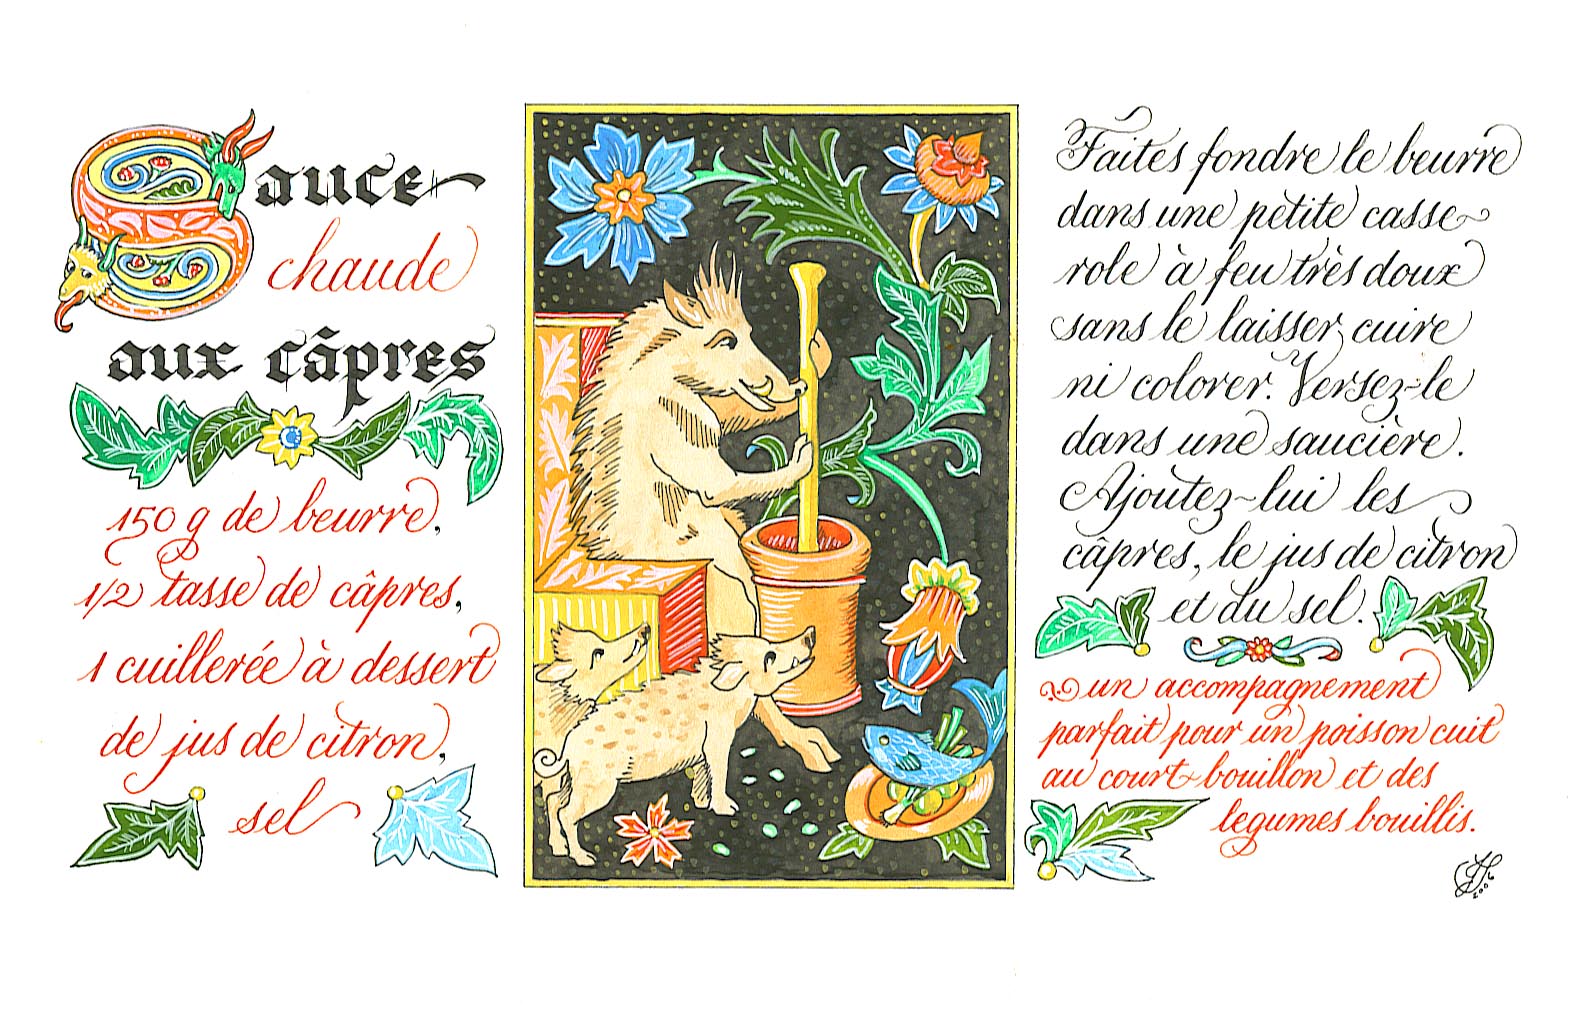 Sauce
chaude
aux câpres
150 g de beurre,
1/2 tasse de câpres,
1 cuillerée à dessert
de jus de citron,
sel
Faites fondre le beurre
dans une petite casse-
role à feu très doux
sans le laisser cuire
ni colorer. Versez-le
dans une saucière.
Ajoutez-lui les
câpres, le jus de citron
et du sel.
un accompagnement
parfait pour un poisson cuit
au court-bouillon et des
legumes bouillis.
2006